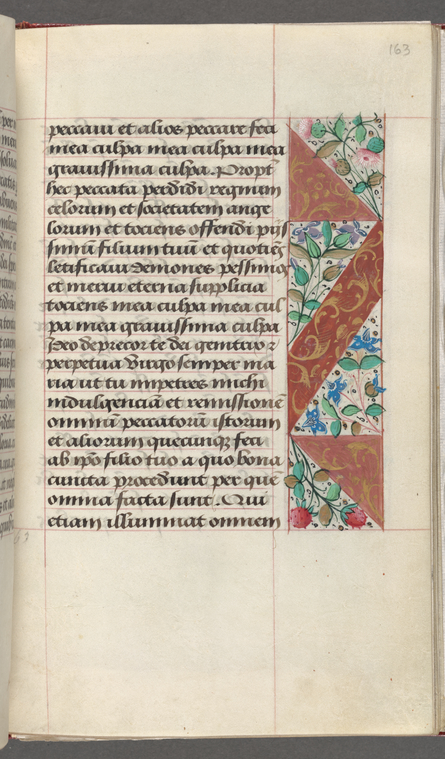 163
peccaui et alios peccare feci
mea culpa mea culpa mea
grauissima culpa. Propt
hec peccata perdidi regnum
celorum et societatem ange
lorum et tociens offendi piis
simum filium tuum et quotiens
letificaui demones pessimos
et merui eterna supplicia
tociens mea culpa mea cul
pa mea grauissima culpa
Ideo deprecor te dei genitrix
perpetua virgo semper ma
ria ut tu impetres michi
indulgenciã et remissionẽ
omniũ peccatorũ istorum
et aliorum quecunqꝫ feci
ab ipõ filio tuo a quo bona
cuncta procedunt per quẽ
omnia facta sunt. Qui
etiam illuminat omnem